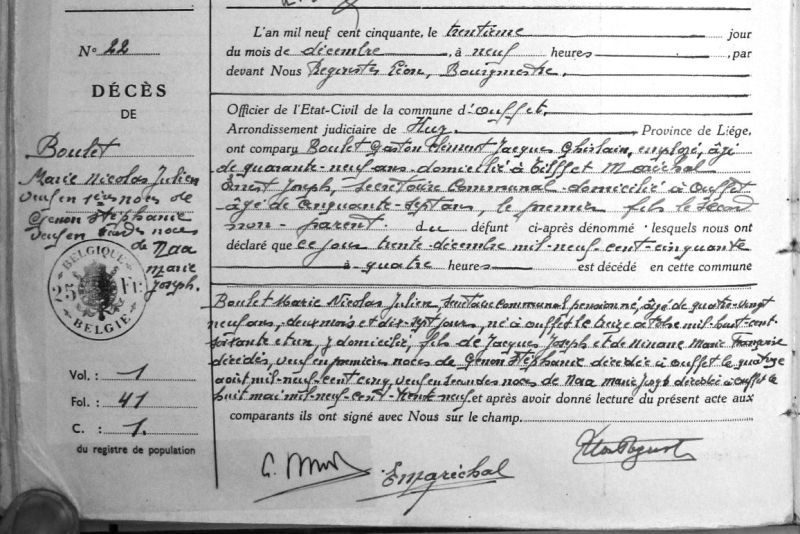 L'an mil neuf cent cinquante, le trentième jour
N° 22
du mois de décembre, à neuf heures, par
devant Nous Léon, Bourgmestre,
DÉCÈS
DE
Officier de l'Etat-Civil de la commune d'Ouffet,
Arrondissement judiciaire de Huy, Province de Liége,
Boulet
ont comparu Boulet Gaston Clément Jacques Ghislain, employé, âgé
Marie Nicolas Julien
de quarante-neuf ans domicilié à Tilff et Maréchal
veuf en 1ères noces de
Ernest Joseph, Secrétaire Communal domicilié à Ouffet
Genon Stéphanie
âgé de cinquante-sept ans, le premier fils le second
veuf en noces
non parent du défunt ci-après dénommé lesquels nous ont
de Naa
déclaré que ce jour trente décembre mil-neuf-cent-cinquante
Marie
à quatre heures est décédé en cette commune
Joseph.
BELGIQUE
25 Fr
BELGIE
Boulet Marie Nicolas Julien, communal pensionné, âgé de quatre-vingt
neuf ans, deux mois et dix-sept jours, né à Ouffet le treize octobre mil-huit-cent
soixante et un, y domicilié, fils de Jacques Joseph et de Ninane Marie Françoise
décédés, veuf en premières noces de Genon Stéphanie décédée à Ouffet le quatorze
août mil-neuf-cent cinq, veuf en secondes noces de Naa Marie Joseph décédée à Ouffet le
huit mai mil-neuf-cent-trente neuf et après avoir donné lecture du présent acte aux
comparants ils ont signé avec Nous sur le champ.
Vol. : 1
Fol. : 41
C. : 1.
du registre de population
E Maréchal